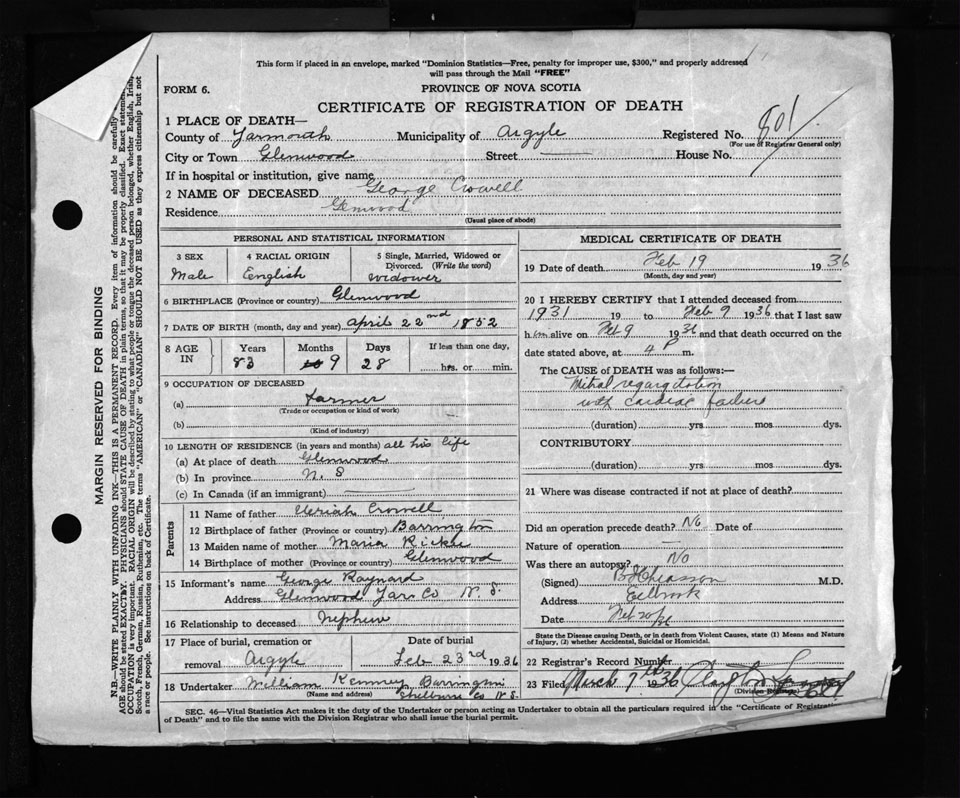 This form if placed in an envelope, marked "Dominion Statistics—Free, penalty for improper use, $300," and properly addressed
will pass through the Mail "FREE"
FORM 6.
PROVINCE OF NOVA SCOTIA
CERTIFICATE OF REGISTRATION OF DEATH
1 PLACE OF DEATH—
County of Yarmouth Municipality of Argyle Registered No. 801
(For use of Registrar General only)
City or Town Glenwood Street — House No.
If in hospital or institution, give name
2 NAME OF DECEASED George Crowell
Residence Glenwood
(Usual place of abode)
PERSONAL AND STATISTICAL INFORMATION
3 SEX
Male
4 RACIAL ORIGIN
English
5 Single, Married, Widowed or
Divorced. (Write the word)
widower
6 BIRTHPLACE (Province or country) Glenwood
7 DATE OF BIRTH (month, day and year) April 22nd 1852
8 AGE IN
Years Months Days If less than one day,
83 9 28 hrs. or min.
9 OCCUPATION OF DECEASED
(a) Farmer
(Trade or occupation or kind of work)
(b)
(Kind of industry)
10 LENGTH OF RESIDENCE (in years and months) all his life
(a) At place of death Glenwood
(b) In province N. S
(c) In Canada (if an immigrant) —
Parents
11 Name of father Uriah Crowell
12 Birthplace of father (Province or country) Barrington
13 Maiden name of mother Maria
14 Birthplace of mother (Province or country) Glenwood
15 Informant's name George Raynard
Address Glenwood Yar Co N. S.
16 Relationship to deceased Nephew
17 Place of burial, cremation or
removal Argyle
Date of burial
Feb 23rd 1936
18 Undertaker William Kenney Barrington
(Name and address) Shelburne Co N.S.
MEDICAL CERTIFICATE OF DEATH
19 Date of death Feb 19 1936
(Month, day and year)
20 I HEREBY CERTIFY that I attended deceased from
1931 19 to Feb 9 1936 that I last saw
him alive on Feb 9 1936 and that death occurred on the
date stated above, at 4 P m.
The CAUSE of DEATH was as follows:—
Mitral regurgitation
with cardiac failure
(duration) yrs mos dys.
CONTRIBUTORY
(duration) yrs mos. dys.
21 Where was disease contracted if not at place of death?
Did an operation precede death? No Date of
Nature of operation —
Was there an autopsy? No
(Signed) Chiasson M.D.
Address Eelbrook
Date Feb 20/36
State the Disease causing Death, or in death from Violent Causes, state (1) Means and Nature
of Injury, (2) whether Accidental, Suicidal or Homicidal.
22 Registrar's Record Number
23 Filed March 7th 1936
(Division Registrar)
SEC. 46—Vital Statistics Act makes it the duty of the Undertaker or person acting as Undertaker to obtain all the particulars required in the "Certificate of Registration
of Death" and to file the same with the Division Registrar who shall issue the burial permit.
MARGIN RESERVED FOR BINDING
N.B.—WRITE PLAINLY WITH UNFADING INK—THIS IS A PERMANENT RECORD. Every item of information should be carefully
AGE should be stated EXACTLY. PHYSICIANS should STATE CAUSE OF DEATH in plain terms, so that it may be properly classified. Exact statement
OCCUPATION is very important. RACIAL ORIGIN will be described by stating to what people or tongue the deceased person belonged, whether English, Irish,
Scotch, French, German, Russian, Ruthenian, etc. The terms "AMERICAN" or "CANADIAN" SHOULD NOT BE USED as they express citizenship but not
a race or people. See instructions on back of Certificate.